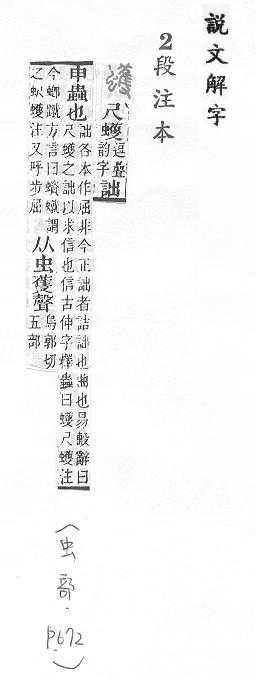 說文解字
2段注本
蠖 尺蠖 逗疊
韵字 詘
申蟲也 詘各本作屈非今正詘者詰詘也曲也易毄辭曰
尺蠖之詘以求信也信古伸字釋蟲曰蠖尺蠖注
今蝍蹴方言曰蠀蠖謂
之蚇蠖注又呼步屈 从虫蒦聲 烏郭切
五部
(虫部.p.672)